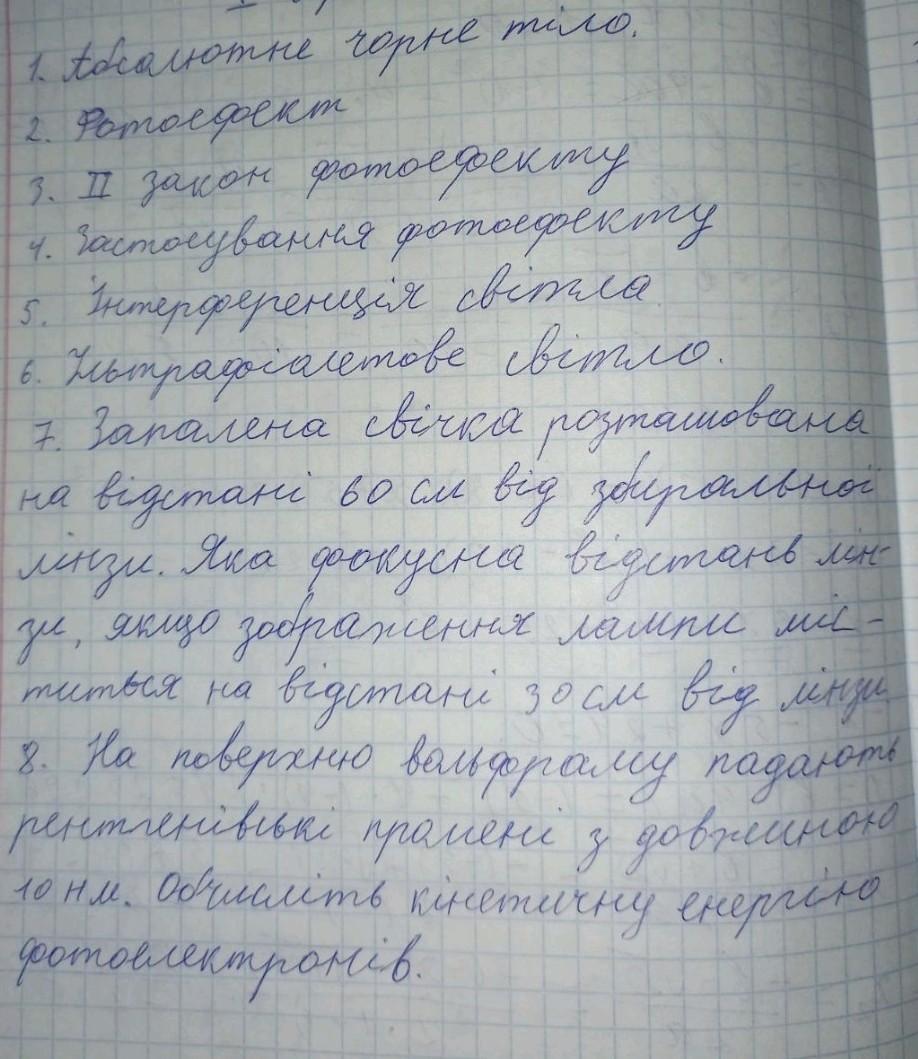 1. Абсолютне чорне тіло.
2. Фотоефект
3. II закон фотоефекту
4. Застосування фотоефекту
5. Інтерференція світла
6. Ультрафіолетове світло.
7. Запалена свічка розташована
на відстані 60 см від збиральної
лінзи. Яка фокусна відстань лін-
зи, якщо зображення лампи міс-
титься на відстані 30 см від лінзи
8. На поверхню вольфраму падають
рентгенівські промені з довжиною
10 нм. Обчисліть кінетичну енергію
фотоелектронів.